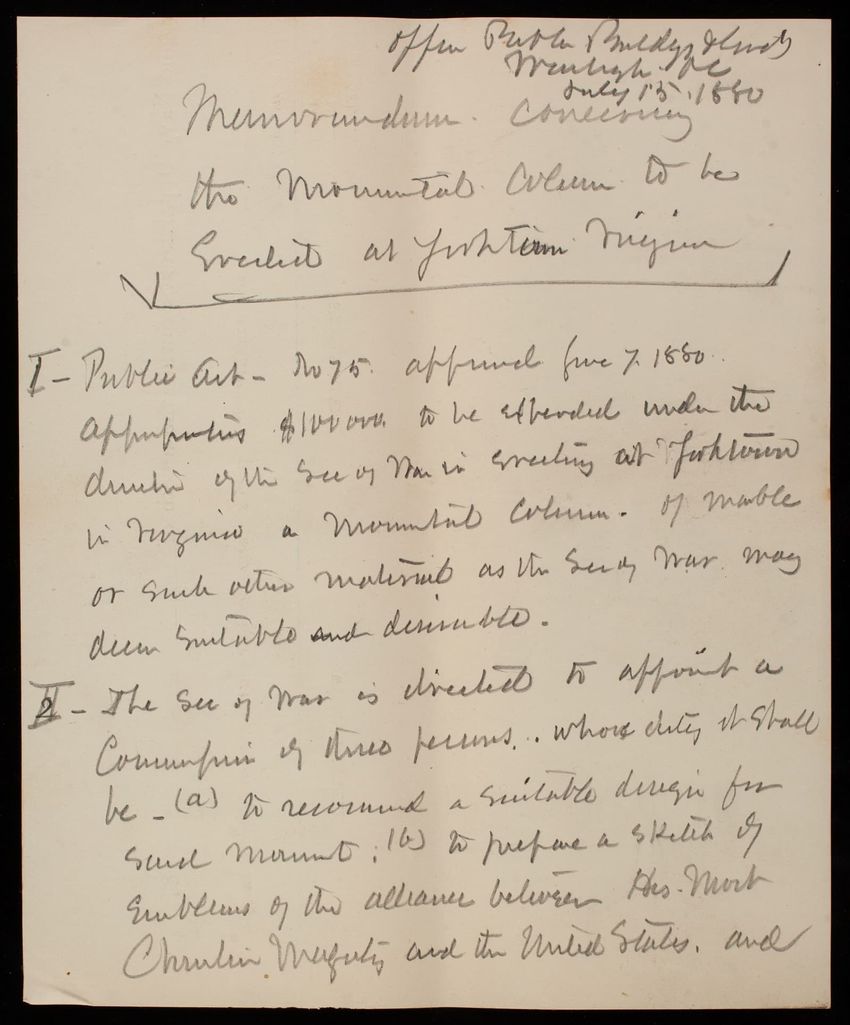 Office Public Buildgs & Grnds
Washington DC
July 15, 1880
Memorandum. Concerning
the Monumental Column to be
Erected at Yorktown Virginia
I - Public Act - No 75. approved June 7. 1880.
appropriates $100,000. to be expended under the
direction of the Sec of War in Erecting at Yorktown
in Virginia a Monumental Column. of marble
or such other material as the Sec of War may
deem Suitable and desirable.
II - The Sec of War is directed to appoint a
Commission of three persons, whose duty it Shall
be - (a) to recommend a Suitable design for
Said Monument; (b) to prepare a Sketch of
Emblems of the alliance between His Most
Christian Majesty and the United States. and